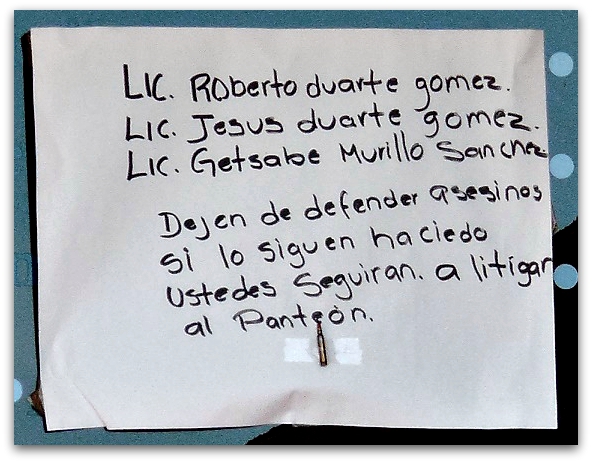 Lic. Roberto duarte gomez.
Lic. Jesus duarte gomez.
Lic. Getsabe Murillo Sanchez
Dejen de defender asesinos
si lo siguen haciedo
ustedes Seguiran. a litigar
al Panteòn.